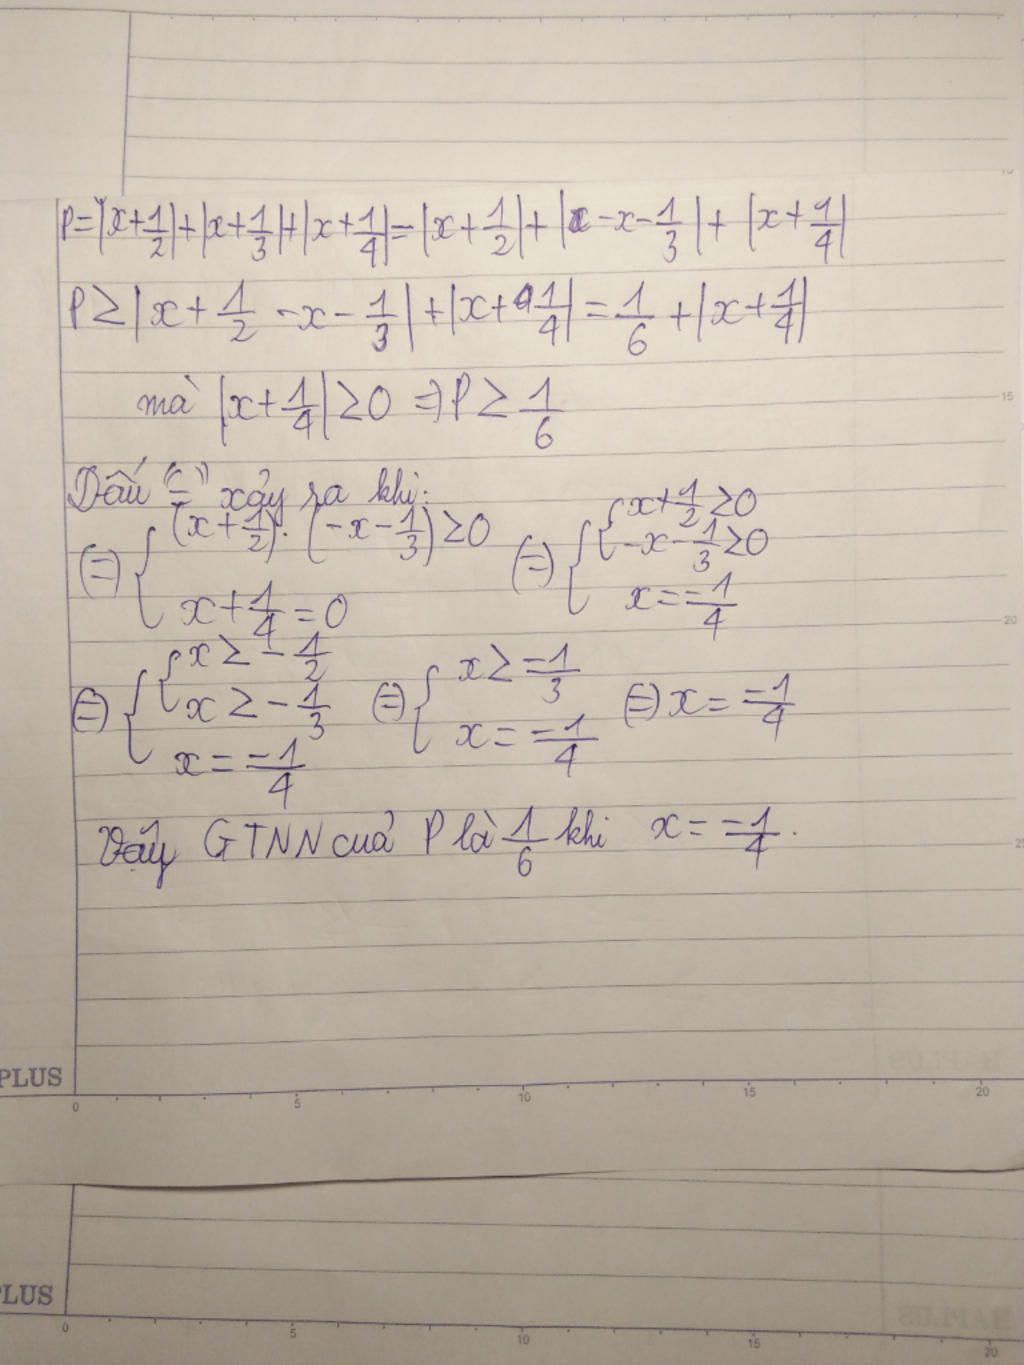 P=|x+1/2|+|x+1/3|+|x+1/4|=|x+1/2|+|-x-1/3|+|x+1/4|
P≥|x+1/2-x-1/3|+|x+1/4|=1/6+|x+1/4|
mà |x+1/4|≥0 ⇒P≥1/6
Dấu "=" xảy ra khi:
(=) { (x+1/2).(-x-1/3)≥0 ; x+1/4=0 (=) { { x+1/2≥0 ; -x-1/3≥0 ; x=-1/4
(=) { { x≥-1/2 ; x≥-1/3 ; x=-1/4 (=) { x≥-1/3 ; x=-1/4 (=) x=-1/4
Vậy GTNN cuả P là 1/6 khi x=-1/4.
PLUS
0 5 10 15 20
15
20
PLUS
0 5 10 15 20